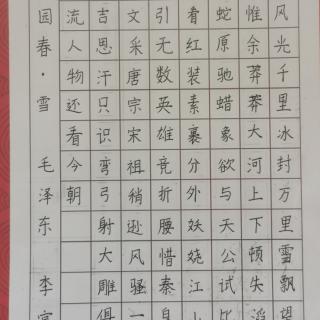 风光千里冰封万里雪飘望
惟余莽莽大河上下顿失滔
蛇原驰蜡象欲与天公试比
看红装素裹分外妖娆江山
引无数英雄竞折腰惜秦
文采唐宗宋祖稍逊风骚一
吉思汗只识弯弓射大雕俱
流人物还看今朝
园春·雪 毛泽东 李